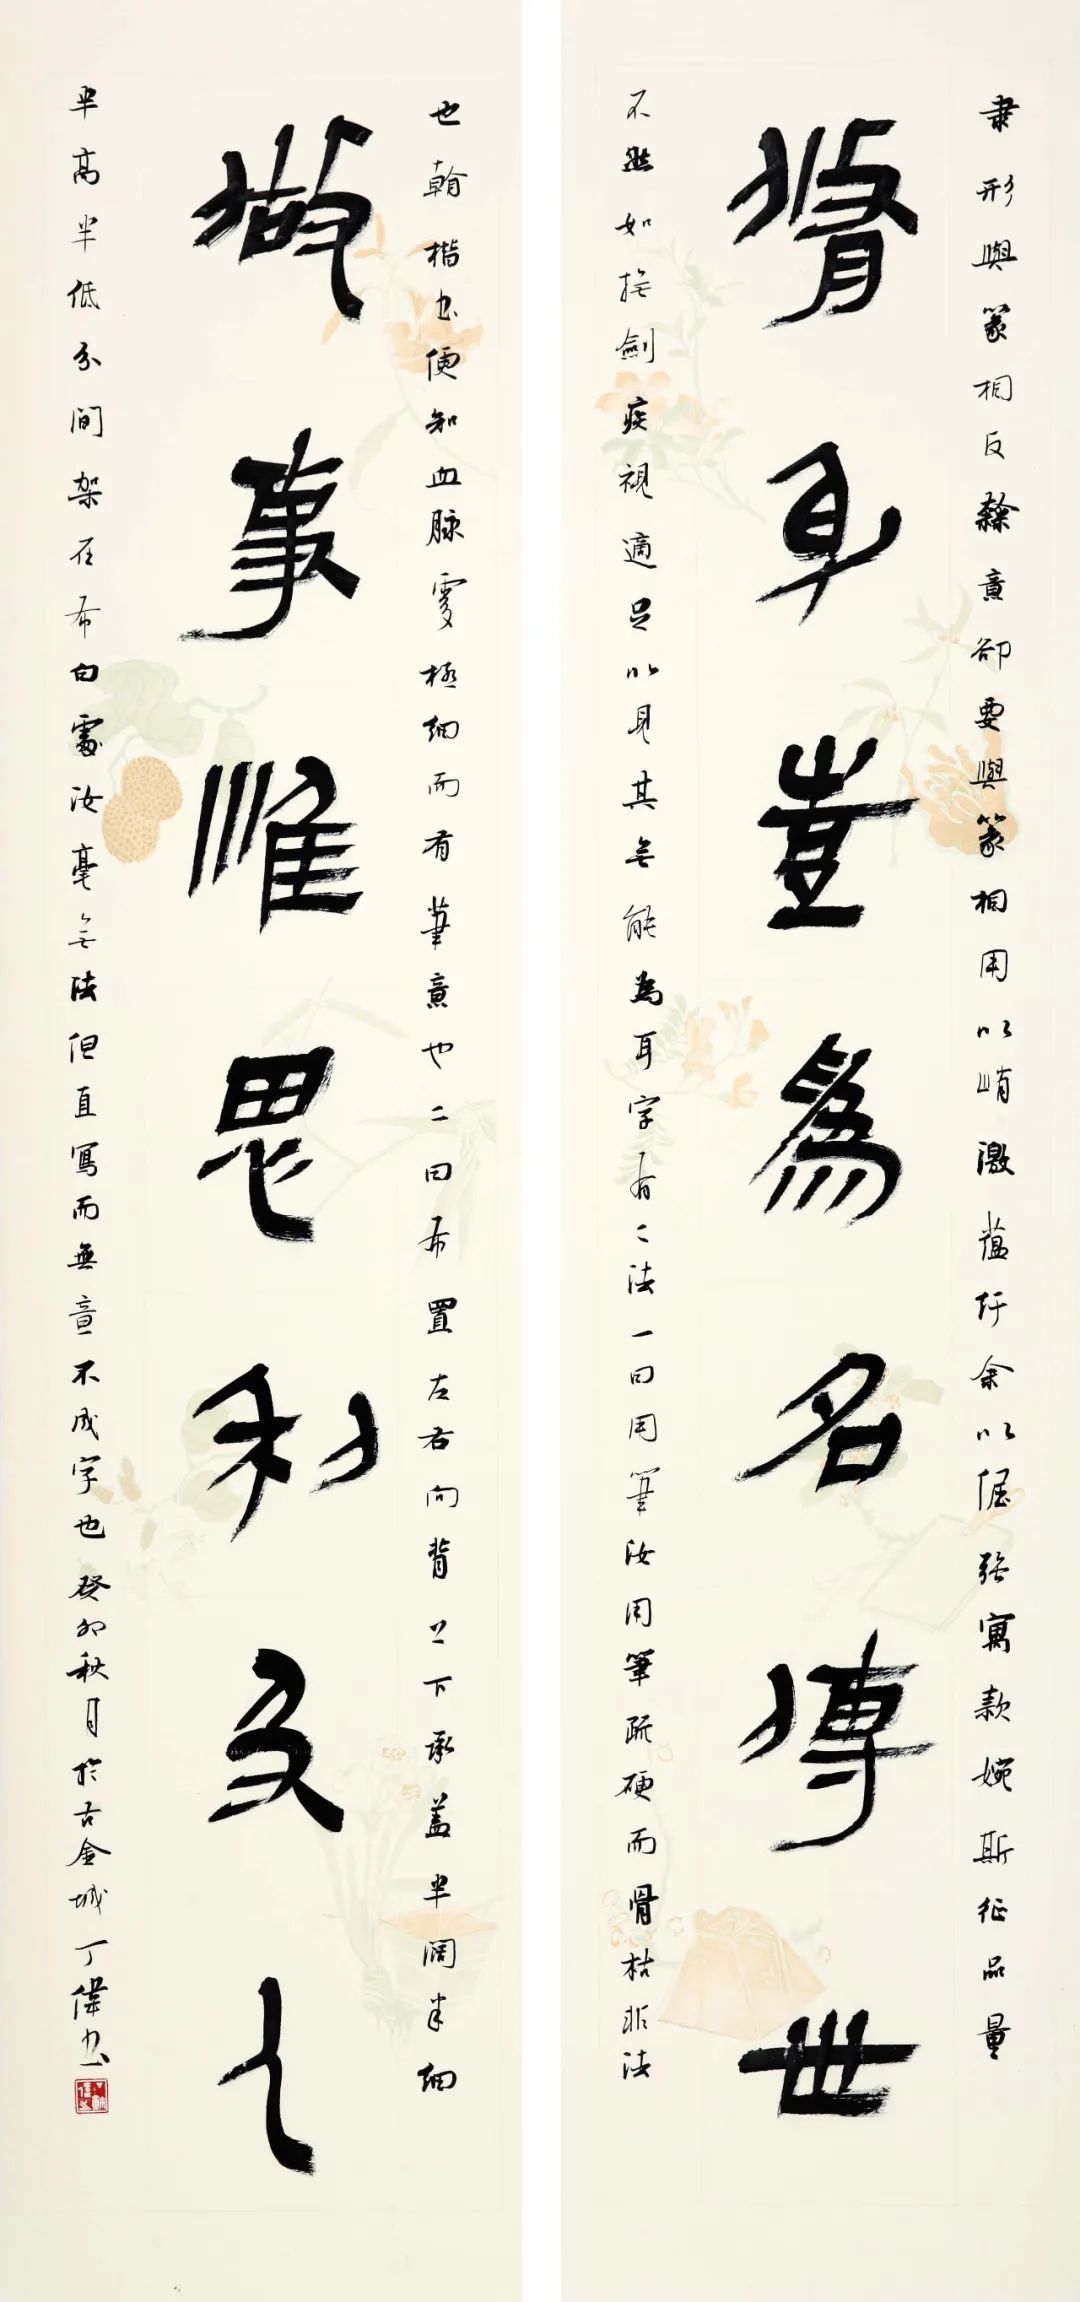 隸形與篆相反隸意卻要與篆相用以峭激蘊紆余以倔強寓款婉斯征品量
脩身豈為名傳世
不然如撫劍疾視適足以見其無能為耳字有二法一曰用筆汝用筆疏硬而骨枯非法
也翰楷書便知血脉處極細而有筆意也二曰布置左右向背上下承蓋半闊半細
做事惟思利及人
半高半低分間架在布白處汝毫無法但直寫而無意不成字也癸卯秋月於古金城丁偉書